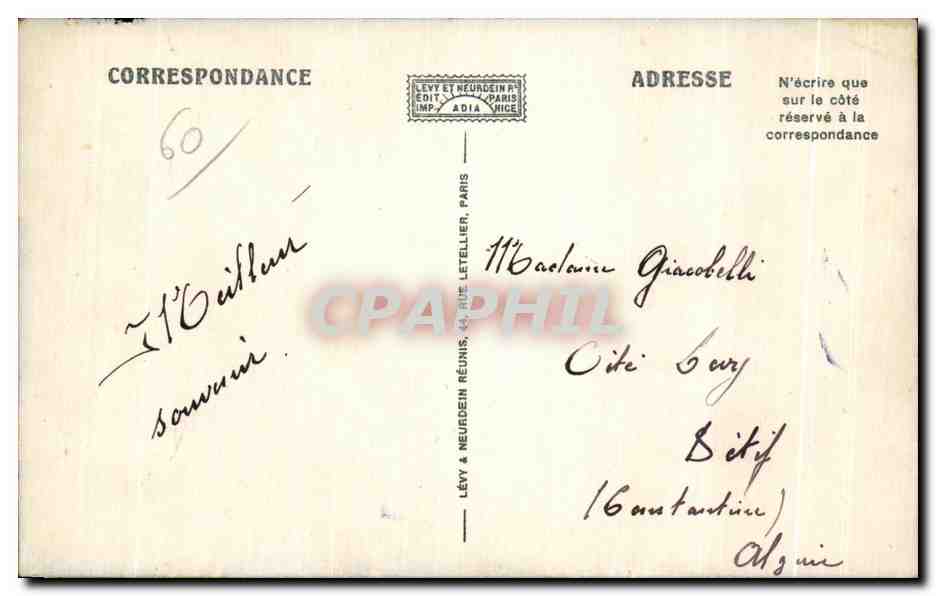 CORRESPONDANCE
LEVY ET NEURDEIN Rs
EDIT. PARIS
IMP. ADIA NICE
ADRESSE
N'écrire que
sur le côté
réservé à la
correspondance
60
Meilleur
souvenir.
LÉVY & NEURDEIN RÉUNIS, 44, RUE LETELLIER, PARIS
CPAPHIL
Madame Giacobelli
Cité Levy
Sétif
(Constantine)
Algérie